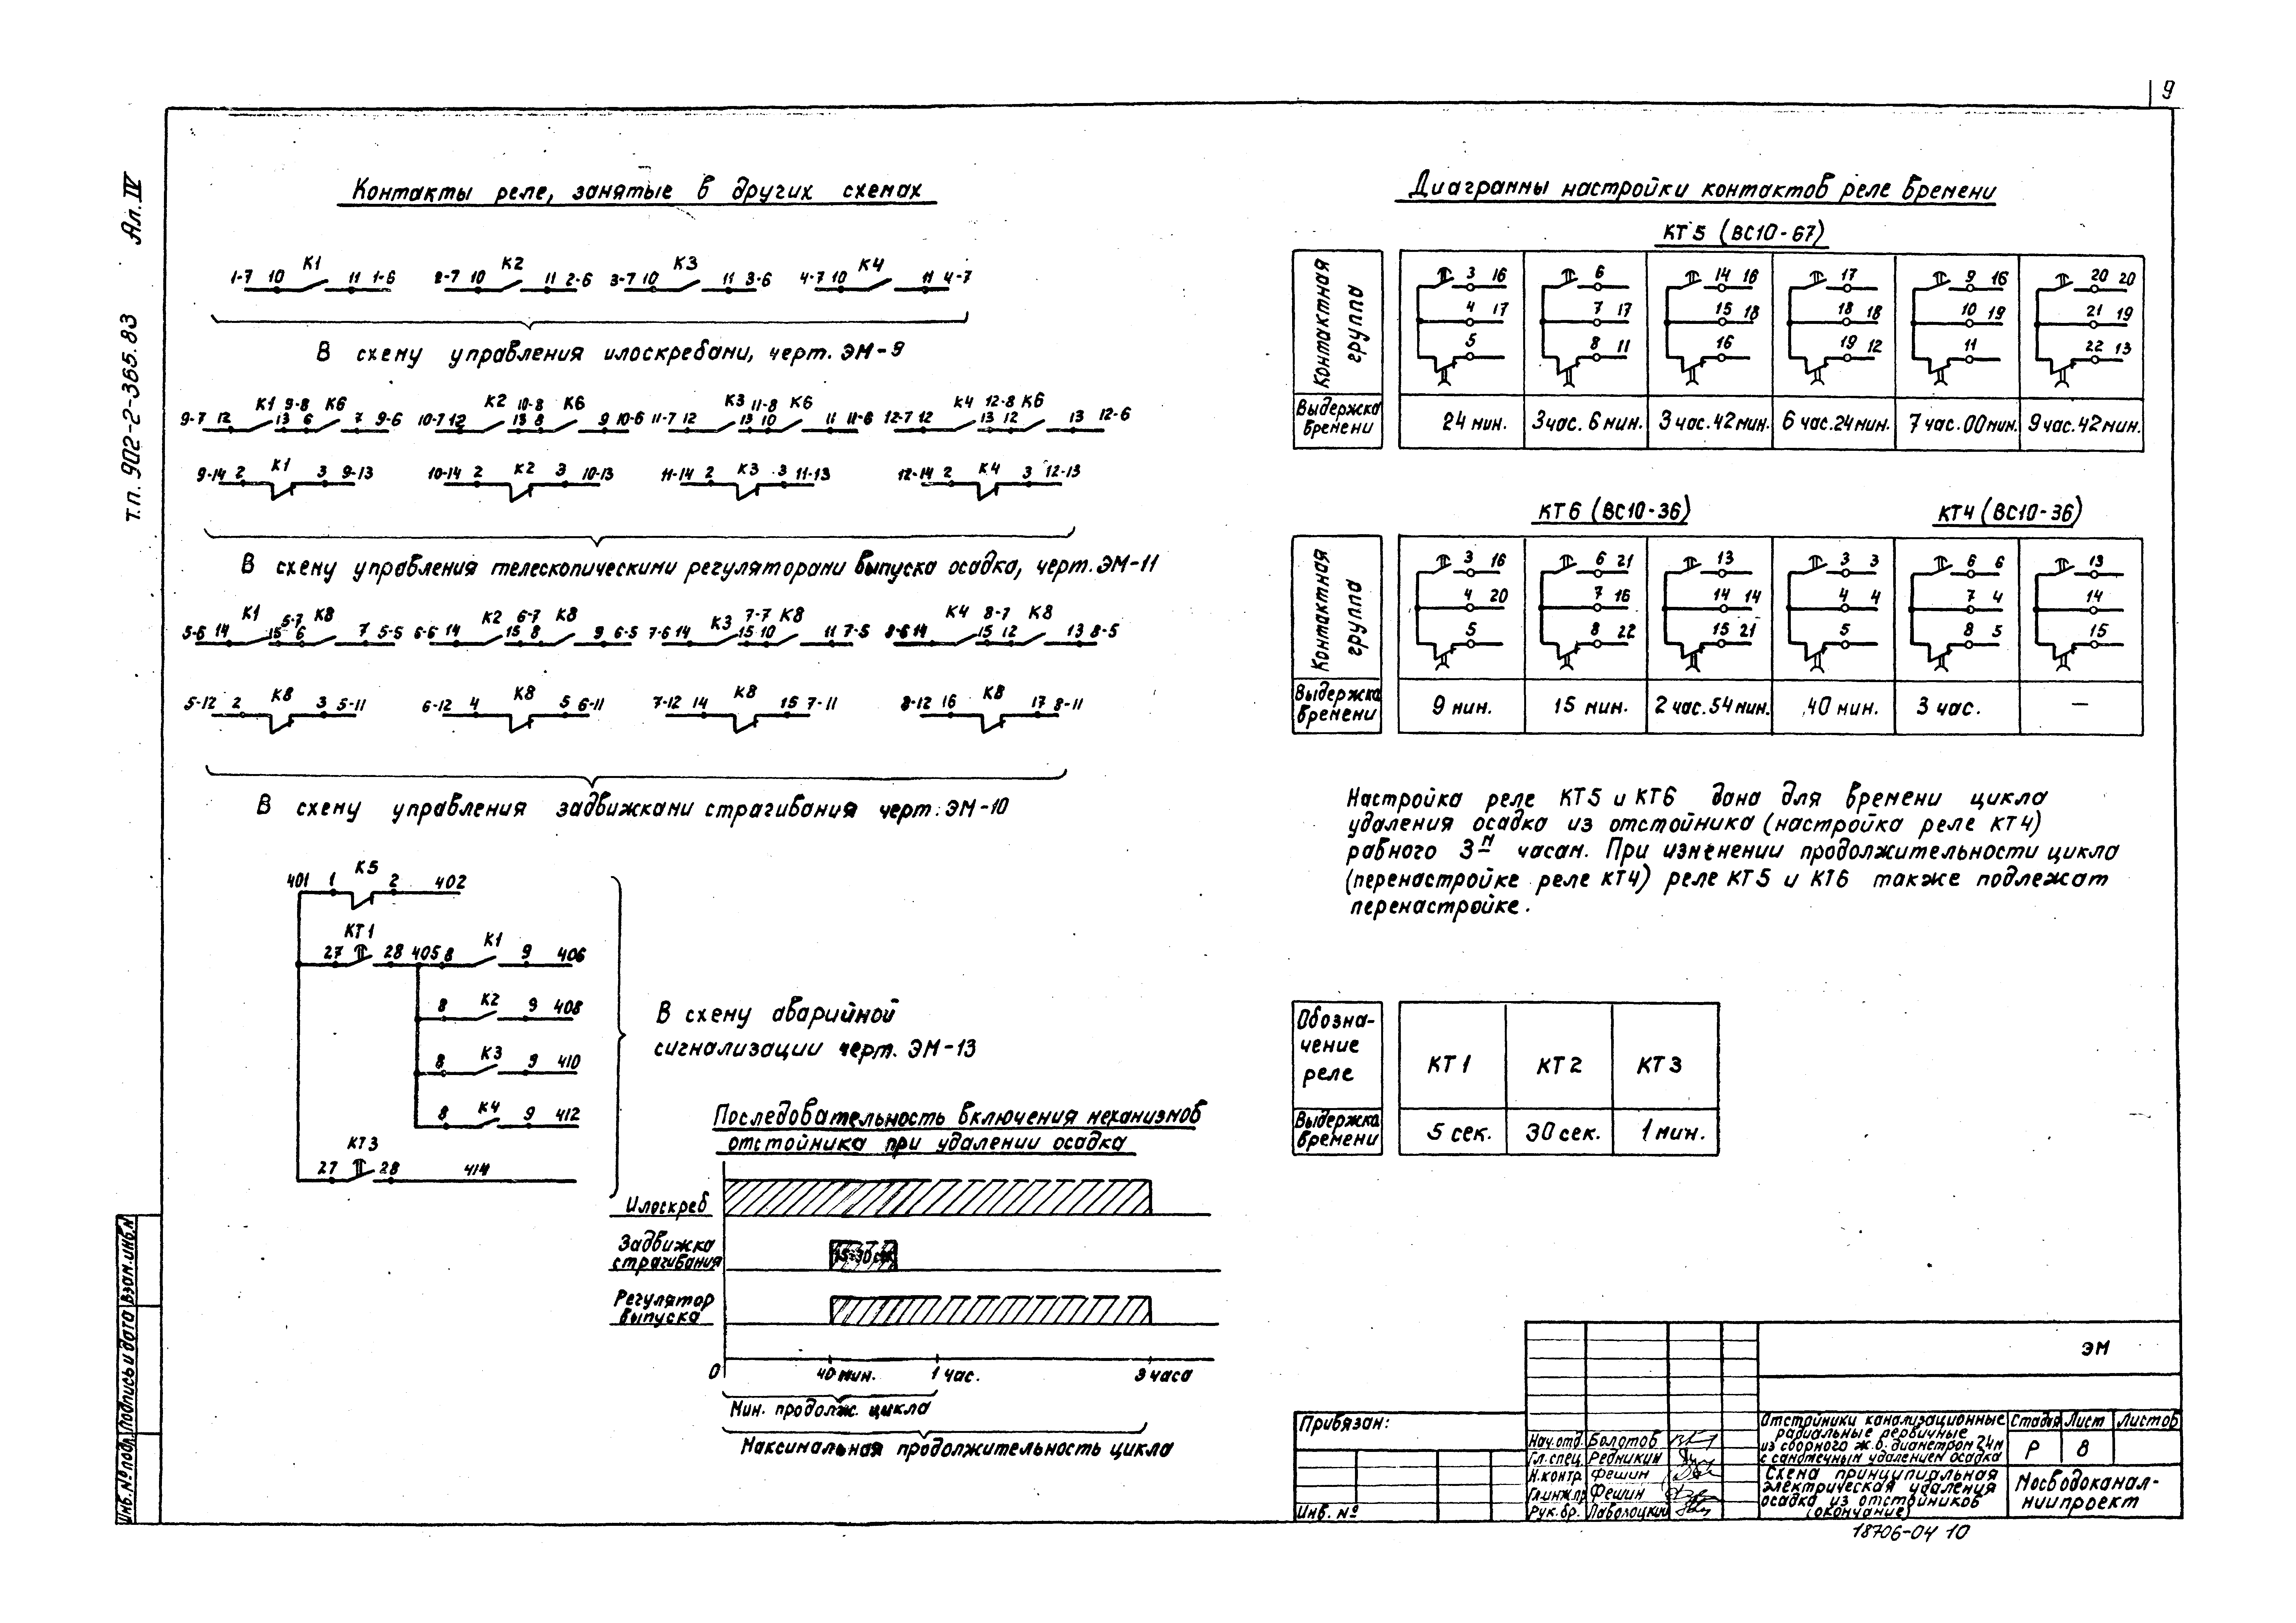 9
Ал. IV
т.п. 902-2-365.83
Контакты реле, занятые в других схемах
1-7 10 К1 11 1-6
2-7 10 К2 11 2-6
3-7 10 К3 11 3-6
4-7 10 К4 11 4-7
В схему управления илоскребами, черт. ЭМ-9
9-7 12 К1 13 9-8 6 К6 7 9-6
10-7 12 К2 13 10-8 8 К6 9 10-6
11-7 12 К3 13 11-8 10 К6 11 11-6
12-7 12 К4 13 12-8 12 К6 13 12-6
9-14 2 К1 3 9-13
10-14 2 К2 3 10-13
11-14 2 К3 3 11-13
12-14 2 К4 3 12-13
В схему управления телескопическими регуляторами выпуска осадка, черт. ЭМ-11
5-6 14 К1 15 5-7 6 К8 7 5-5
6-6 14 К2 15 6-7 8 К8 9 6-5
7-6 14 К3 15 7-7 10 К8 11 7-5
8-6 14 К4 15 8-7 12 К8 13 8-5
5-12 2 К8 3 5-11
6-12 4 К8 5 6-11
7-12 14 К8 15 7-11
8-12 16 К8 17 8-11
В схему управления задвижками страгибания черт. ЭМ-10
401 1 К5 2 402
27 КТ1 28 405 8 К1 9 406
8 К2 9 408
8 К3 9 410
8 К4 9 412
27 КТ3 28 414
В схему аварийной
сигнализации черт. ЭМ-13
Последовательность включения механизмов
отстойника при удалении осадка
Илоскреб
Задвижка
страгибания
15-30 сек
Регулятор
выпуска
0 40 мин. 1 час. 3 часа
Мин. продолж. цикла
Максимальная продолжительность цикла
Диаграммы настройки контактов реле времени
КТ5 (ВС10-67)
Контактная группа
3 16 6 14 16 17 9 16 20 20
4 17 7 17 15 18 18 18 10 19 21 19
5 8 11 16 19 12 11 22 13
Выдержка времени
24 мин. 3 час. 6 мин. 3 час. 42 мин. 6 час. 24 мин. 7 час. 00 мин. 9 час. 42 мин.
КТ6 (ВС10-36) КТ4 (ВС10-36)
Контактная группа
3 16 6 21 13 3 3 6 6 13
4 20 7 16 14 14 4 4 7 4 14
5 8 22 15 21 5 8 5 15
Выдержка времени
9 мин. 15 мин. 2 час. 54 мин. 40 мин. 3 час. —
Настройка реле КТ5 и КТ6 дана для времени цикла
удаления осадка из отстойника (настройка реле КТ4)
равного 3м часам. При изменении продолжительности цикла
(перенастройке реле КТ4) реле КТ5 и КТ6 также подлежат
перенастройке.
Обозна-
чение
реле
КТ1 КТ2 КТ3
Выдержка
времени
5 сек. 30 сек. 1 мин.
ЭМ
Привязан:
Инв. №
Нач. отд. Болотов
Гл. спец. Редникин
Н.контр. Фешин
Гл.инж.пр Фешин
Рук. бр. Паволоцкий
Отстойники канализационные
радиальные первичные
из сборного ж.б. диаметром 24м
с самотечным удалением осадка
Стадия Лист Листов
Р 8
Схема принципиальная
электрическая удаления
осадка из отстойников
(окончание)
Мосводоканал-
ниипроект
18706-04 10
Инв. № подл. Подпись и дата Взам. инв. №